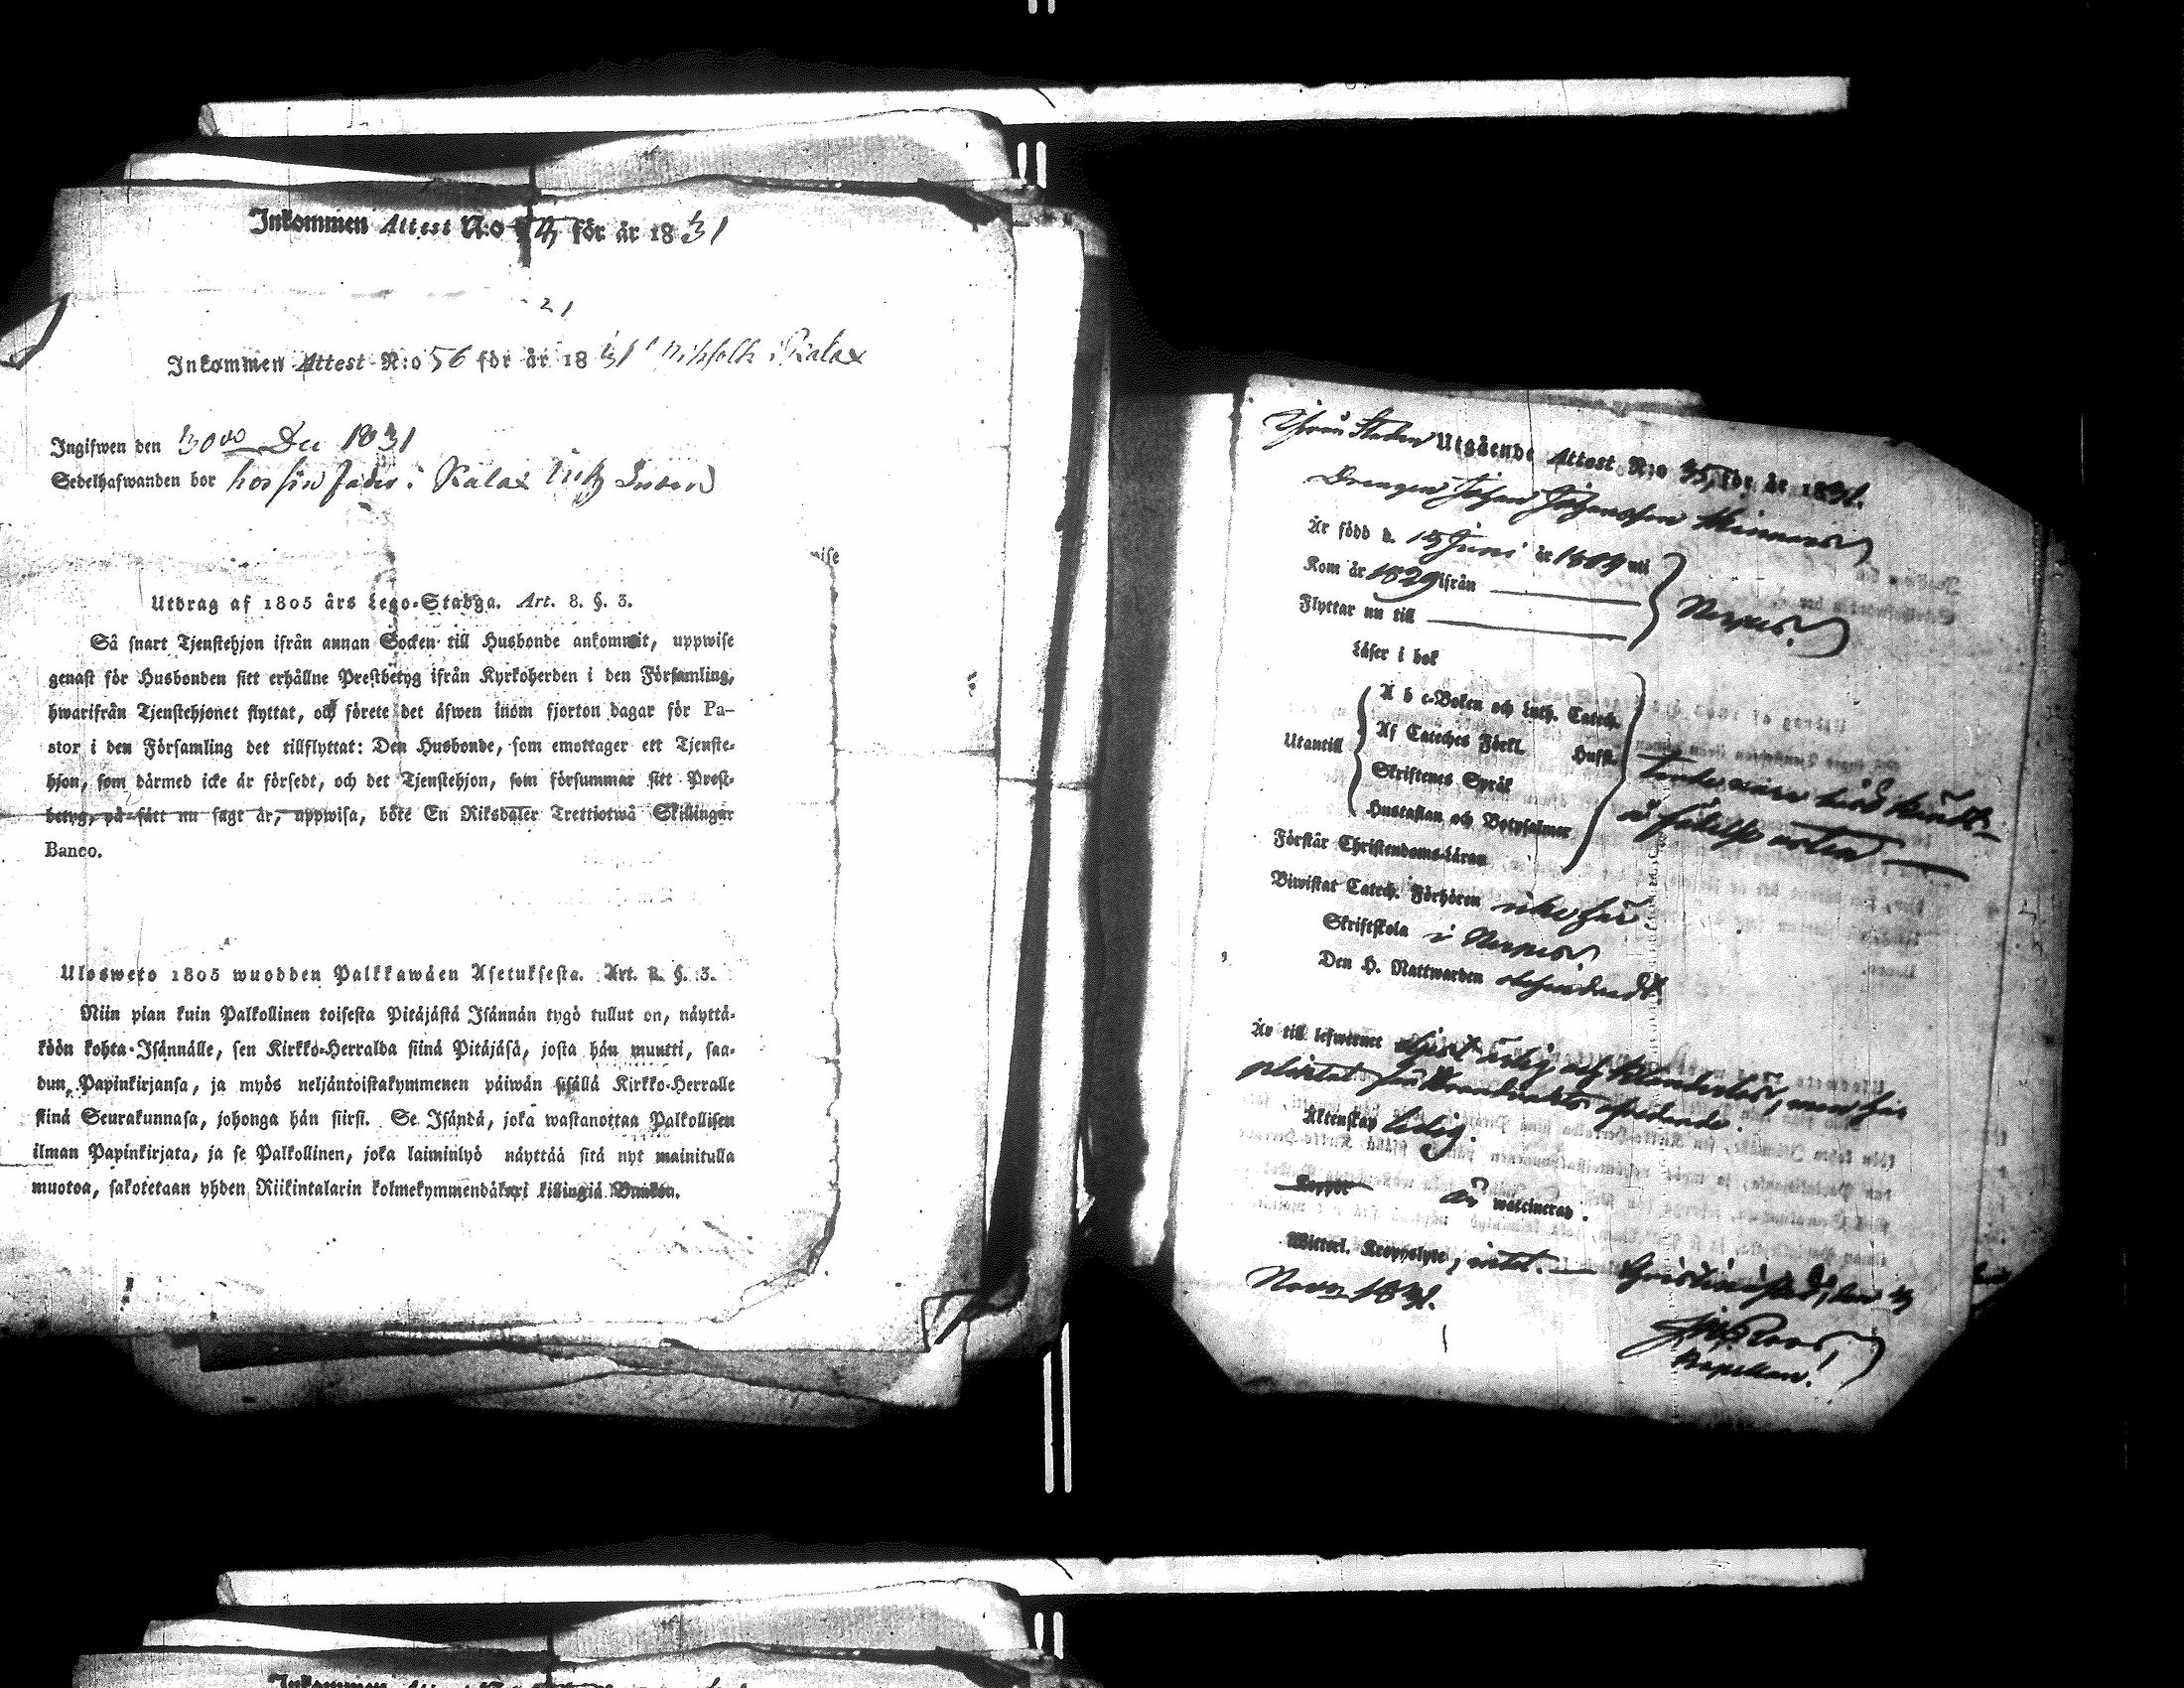 Inkommen Attest N:o för år 1831
21
Inkommen Attest N:o 56 för år 1831 Kalax
Ingifwen den 30 Dec 1831
Sedelhafwanden bor hos sin fader i Kalax
wise
Utdrag af 1805 års Lego-Stadga. Art. 8. §. 3.
Så snart Tjenstehjon ifrån annan Socken till Husbonde ankommit, uppwise
genast för Husbonden sitt erhållne Prestbetyg ifrån Kyrkoherden i den Församling,
hwarifrån Tjenstehjonet flyttat, och förete det äfwen inom fjorton dagar för Pa-
stor i den Församling det tillflyttat: Den Husbonde, som emottager ett Tjenste-
hjon, som därmed icke är försedt, och det Tjenstehjon, som försummar sitt Prest-
betyg, på sätt nu sagt är, uppwisa, böte En Riksdaler Trettiotwå Skillingar
Banco.
Ulosweto 1805 wuodden Palkkawäen Asetuksesta. Art. 8. §. 3.
Niin pian kuin Palkollinen toisesta Pitäjästä Isännän tygö tullut on, näyttä-
köön kohta Isännälle, sen Kirkko-Herralda siinä Pitäjäsä, josta hän muutti, saa-
dun Papinkirjansa, ja myös neljäntoistakymmenen päiwän sisällä Kirkko-Herralle
siinä Seurakunnasa, johonga hän siirsi. Se Isändä, joka wastanottaa Palkollisen
ilman Papinkirjata, ja se Palkollinen, joka laiminlyö näyttää sitä nyt mainitulla
muotoa, sakotetaan yhden Riikintalarin kolmekymmendäkaxi killingiä Bankon.
Ifrån Staden Utgående Attest N:o 35 för år 1831.
Drengen Johan Johansson
Är född d. 13 Juni år 1809 uti
Kom år 1829 ifrån
Flyttar nu till
Nerpes.
Läser i bok
A b c-Boken och Luth. Catech.
Af Cateches Förkl. Hufst.
Utantill
Skriftenes Språk
Hustaflan och Botpsalmer
Förstår Christendoms-Läran
Biwistat Catech. Förhören icke här
Skriftskola i Nerpes
Den H. Nattwarden
Är till lefwernet ärlig och klanderlös, men har
Äktenskap ledig.
Koppor är waccinerad.
Witterl. Kroppslyte, intet. Christinestad, den
Novr 1831.
Roos
Kapellan.